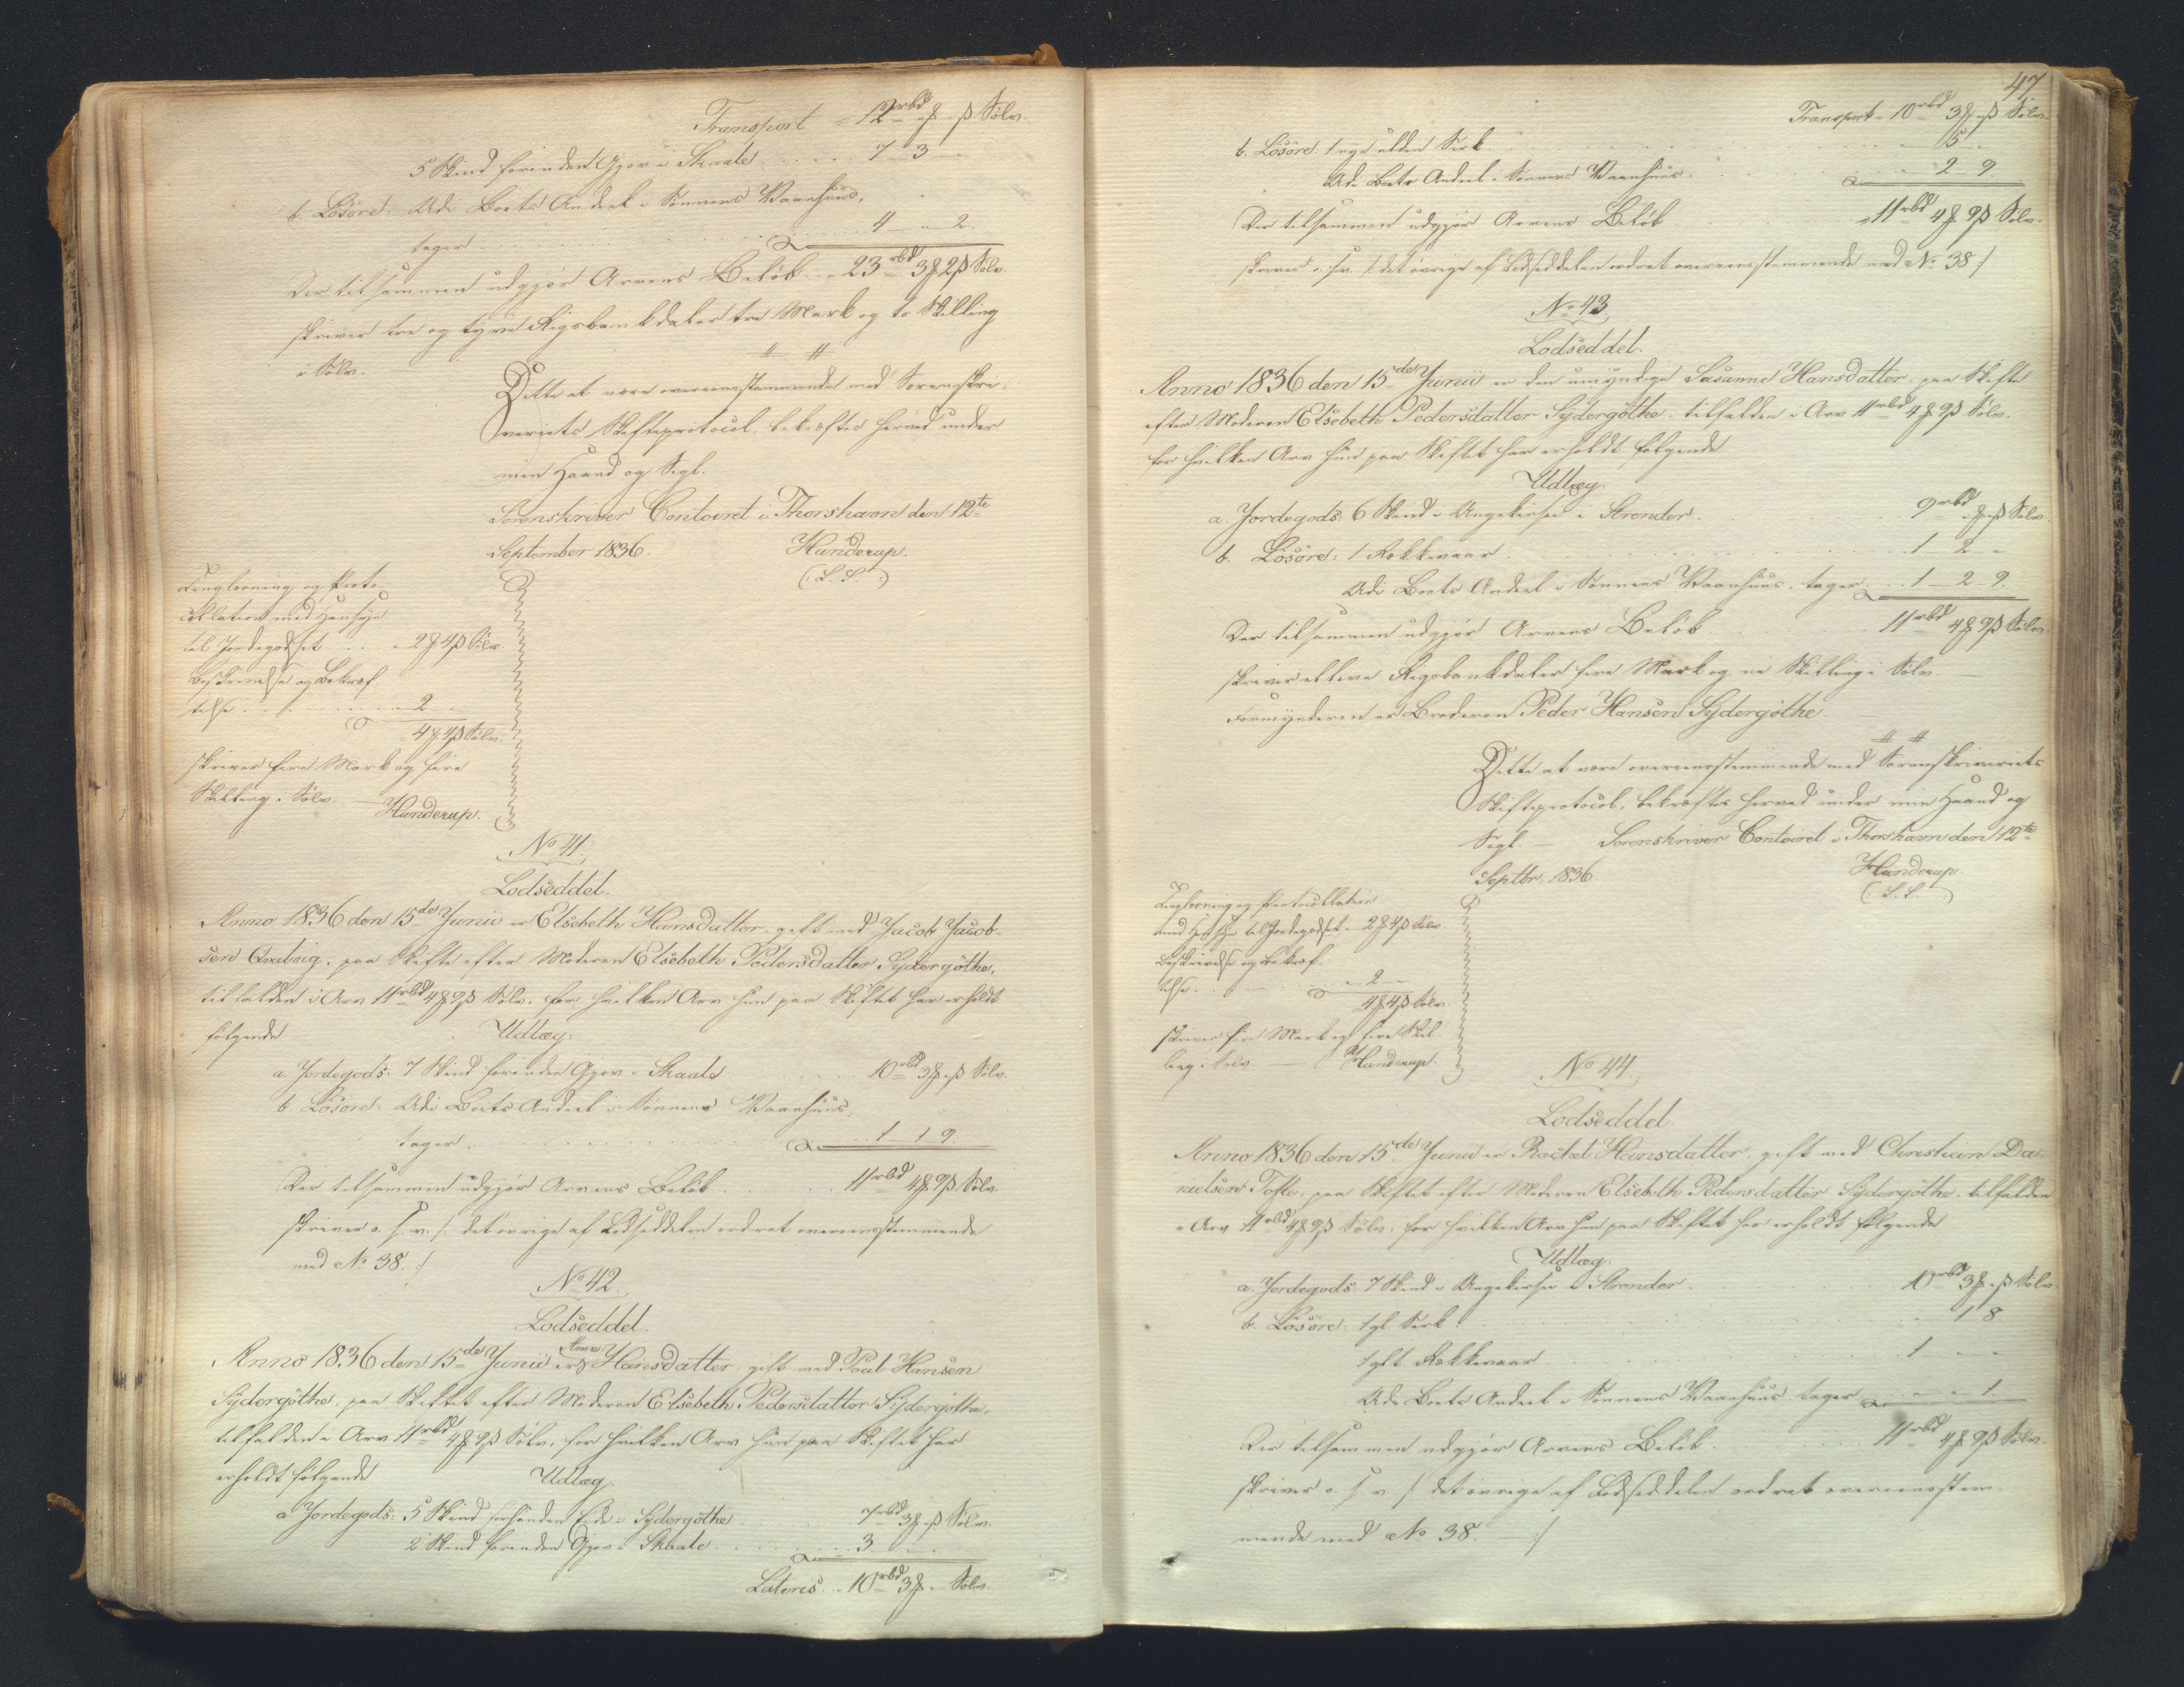 Transport = 12 rbd " ₰ " ß Sölv.
5 Skind forinden Gjov i Skaale . . . . . 7 – 3 – "
b. Lösöre: Udi Boets Andeel i Sönnens Vaanhuus,
tager . . . . . . . . 4 – " – 2.
Der tilsammen udgjør Arvens Belöb . . = 23 rbd 3 ₰ 2 ß Sölv.
skriver tre og tyve Rigsbankdaler tre Mark og to Skilling
i Sölv.
Dette at være overeensstemmende med Sorenskri-
veriets Skifteprotocol, bekræftes herved under
min Haand og Segl.
Sorenskriver Contoiret i Thorshavn den 12te
September 1836. Hunderup.
(: L. S. :)
Tinglæsning og Proto-
collation med Hensyn
til Jordegodset . . . = 2 ₰ 4 ß Sölv.
Beskrivelse og Bekræf-
telse . . . . . . . = 2 "
= 4 ₰ 4 ß Sölv.
skriver fire Mark og fire
Skilling i Sölv. — Hunderup.
No 41.
Lodseddel.
Anno 1836 den 15de Junii er Elsebeth Hansdatter, gift med Jacob Jacob-
sen Qvalvig, paa Skifte efter Moderen Elsebeth Pedersdatter Sydergöthe,
tilfalden i Arv 11 rbd 4 ₰ 9 ß Sölv, for hvilken Arv hun paa Skiftet har erholdt
følgende Udlæg:
a. Jordegods: 7 Skind forinden Gjov i Skaale . . . 10 rbd 3 ₰ " ß Sölv.
b. Lösöre: Udi Boets Andeel i Sönnens Vaanhuus,
tager . . . . . . . . . 1 – 1 – 9.
Der tilsammen udgjør Arvens Belöb . . . . . . 11 rbd 4 ₰ 9 ß Sölv.
skriver o. s. v. /: det øvrige af Lodseddelen ordret overeensstemmende
med No 38. :/
No 42.
Lodseddel.
Anno 1836 den 15de Junii er Anna Hansdatter, gift med Poul Hansen
Sydergöthe, paa Skiftet efter Moderen Elsebeth Pedersdatter Sydergöthe,
tilfalden i Arv 11 rbd 4 ₰ 9 ß Sölv, for hvilken Arv hun paa Skiftet har
erholdt følgende Udlæg.
a Jordegods: 5 Skind i Sydergöthe . . . 7 rbd 3 ₰ " ß Sölv.
2 Skind forinden Gjov i Skaale . . . . . . 3 – " – "
Lateris . . 10 rbd 3 ₰ " Sölv.
47
Transport = 10 rbd 3 ₰ " ß Sölv.
b. Lösöre: 1 nye ulden Serk . . . . . 5 "
Udi Boets Andeel i Sönnens Vaanhuus . . . " 2 – 9.
Der tilsammen udgjør Arvens Belöb . . . = 11 rbd 4 ₰ 9 ß Sölv.
skriver o. s. v. /: det øvrige af Lodseddelen ordret overeensstemmende med No 38 :/
No 43.
Lodseddel.
Anno 1836 den 15de Junii er den umyndige Susanne Hansdatter, paa Skifte
efter Moderen Elsebeth Pedersdatter Sydergöthe, tilfalden i Arv 11 rbd 4 ₰ 9 ß Sölv.
for hvilken Arv hun paa Skiftet har erholdt følgende
Udlæg.
a. Jordegods: 6 Skind i Strender . . . 9 rbd " ₰ " ß Sölv.
b. Lösöre: 1 Rokkevaar . . . . . 1 – 2 – "
Udi Boets Andeel i Sönnens Vaanhuus, tager . . 1 – 2 – 9.
Der tilsammen udgjør Arvens Belöb . . . 11 rbd 4 ₰ 9 ß Sölv.
skriver elleve Rigsbankdaler fire Mark og ni Skilling i Sölv.
Formynderen er Broderen Peder Hansen Sydergöthe.
Dette at være overeensstemmende med Sorenskriveriets
Skifteprotocol, bekræftes herved under min Haand og
Segl. — Sorenskriver Contoiret i Thorshavn den 12te
Septbr. 1836. Hunderup.
(: L. S. :)
Tinglæsning og Protocollation
med Hensyn til Jordegodset = 2 ₰ 4 ß Sölv.
Beskrivelse og Bekræf-
telse . . . . . . = 2 – "
4 ₰ 4 ß Sölv.
skriver fire Mark og fire Skil-
ling i Sölv — Hunderup.
No 44.
Lodseddel
Anno 1836 den 15de Junii er Rachel Hansdatter, gift med Christian Da-
nielsen Tofte, paa Skiftet efter Moderen Elsebeth Pedersdatter Sydergöthe, tilfalden
i Arv 11 rbd 4 ₰ 9 ß Sölv, for hvilken Arv hun paa Skiftet har erholdt følgende
Udlæg.
a. Jordegods: 7 Skind i Strender . . . 10 rbd 3 ₰ " ß Sölv.
b. Lösöre: 1 gl. Serk . . . . . " – 1 – 8.
1 glt Rokkevaar . . . . . 1 – " – "
Udi Boets Andeel i Sönnens Vaanhuus tager . . " – " – 1.
Der tilsammen udgjør Arvens Belöb . . . 11 rbd 4 ₰ 9 ß Sölv.
skriver o. s. v. /: det øvrige af Lodseddelen ordret overeensstem-
mende med No 38. — :/